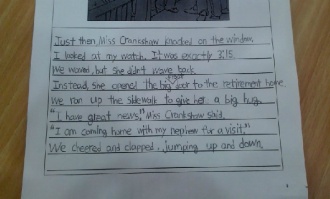 Just then Miss Crankshaw knocked on the window.
I looked at my watch. It was exactly 3:15.
We waved, but she didn't wave back.
Instead, she opened the big front door to the retirement home.
We ran up the sidewalk to give her a big hug.
"I have great news," Miss Crankshaw said.
"I am coming home with my nephew for a visit."
We cheered and clapped, jumping up and down.